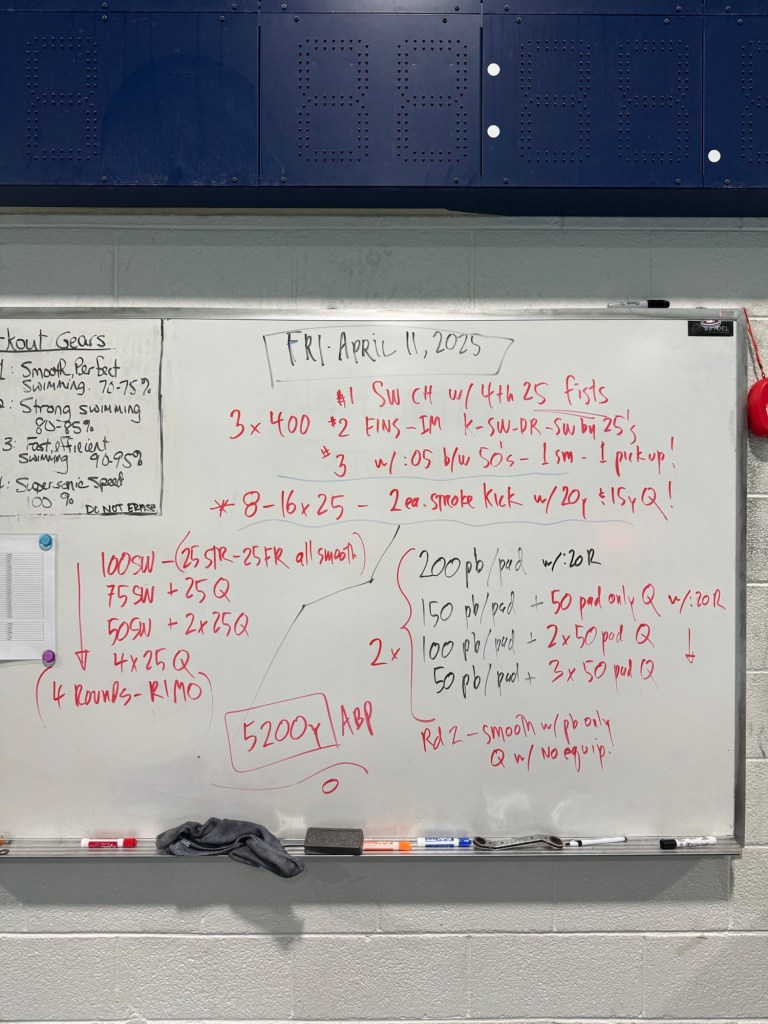 kout Gears
1: Smooth, Perfect
Swimming. 70-75%
2: Strong swimming
80-85%
3: Fast, efficient
swimming 90-95%
4: Supersonic Speed
100 %
DO NOT ERASE
FRI. APRIL 11, 2025
3 x 400
#1 SW CH w/ 4th 25 fists
#2 FINS - IM K-SW-DR-SW by 25's
#3 w/ :05 b/w 50's - 1 sm - 1 pick up!
* 8-16 x 25 - 2 ea. stroke kick w/ 20y & 15y Q!
100 SW - (25 STR - 25 FR all smooth)
75 SW + 25 Q
50 SW + 2 x 25 Q
4 x 25 Q
(4 Rounds - RIMO)
5200y ABP
2 x
200 pb/pad w/ :20 R
150 pb/pad + 50 pad only Q w/ :20R
100 pb/pad + 2 x 50 pad Q
50 pb/pad + 3 x 50 pad Q
Rd 2 - smooth w/ pb only
Q w/ No equip.